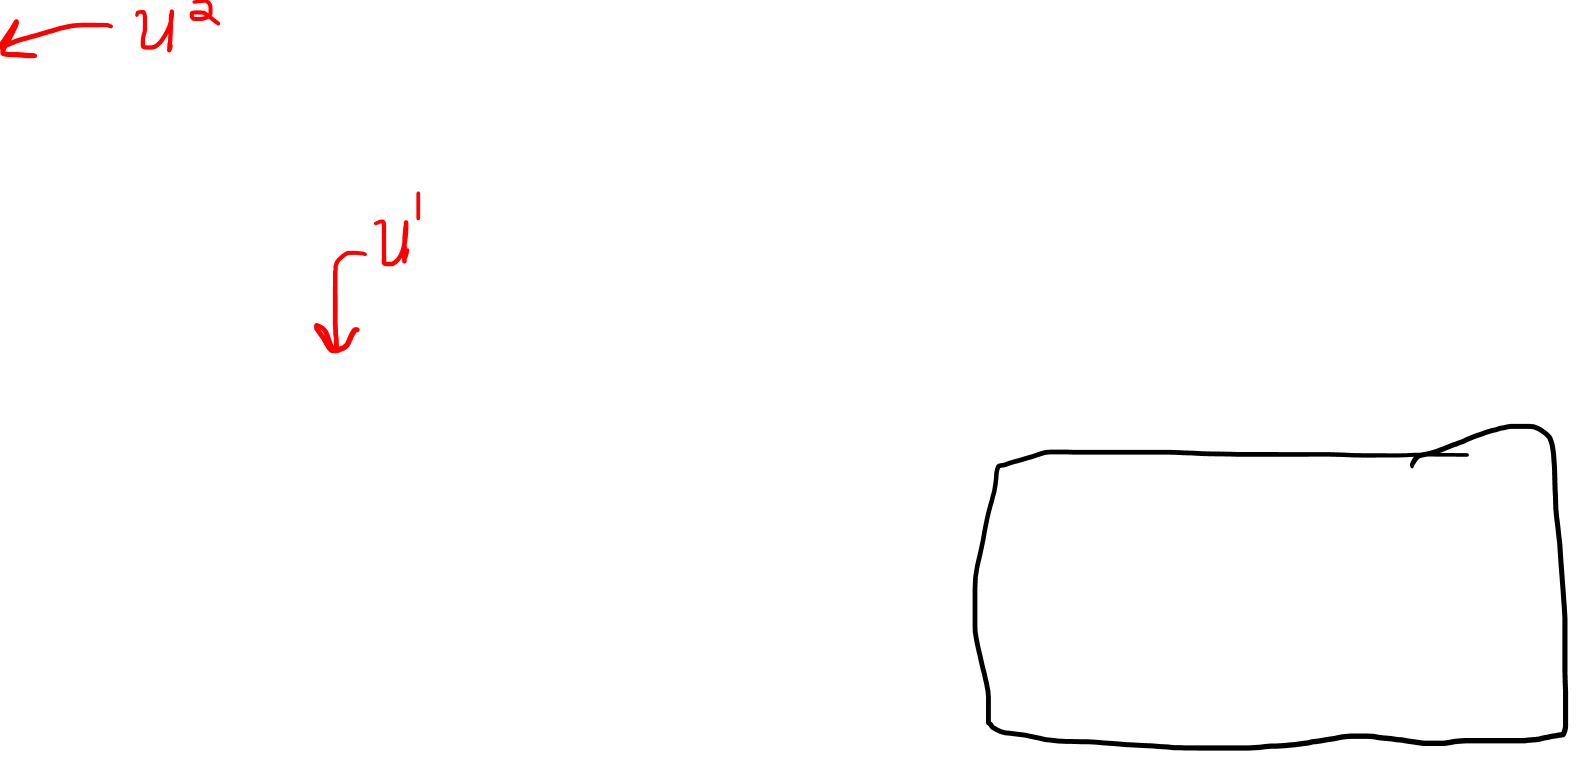 u²
u¹